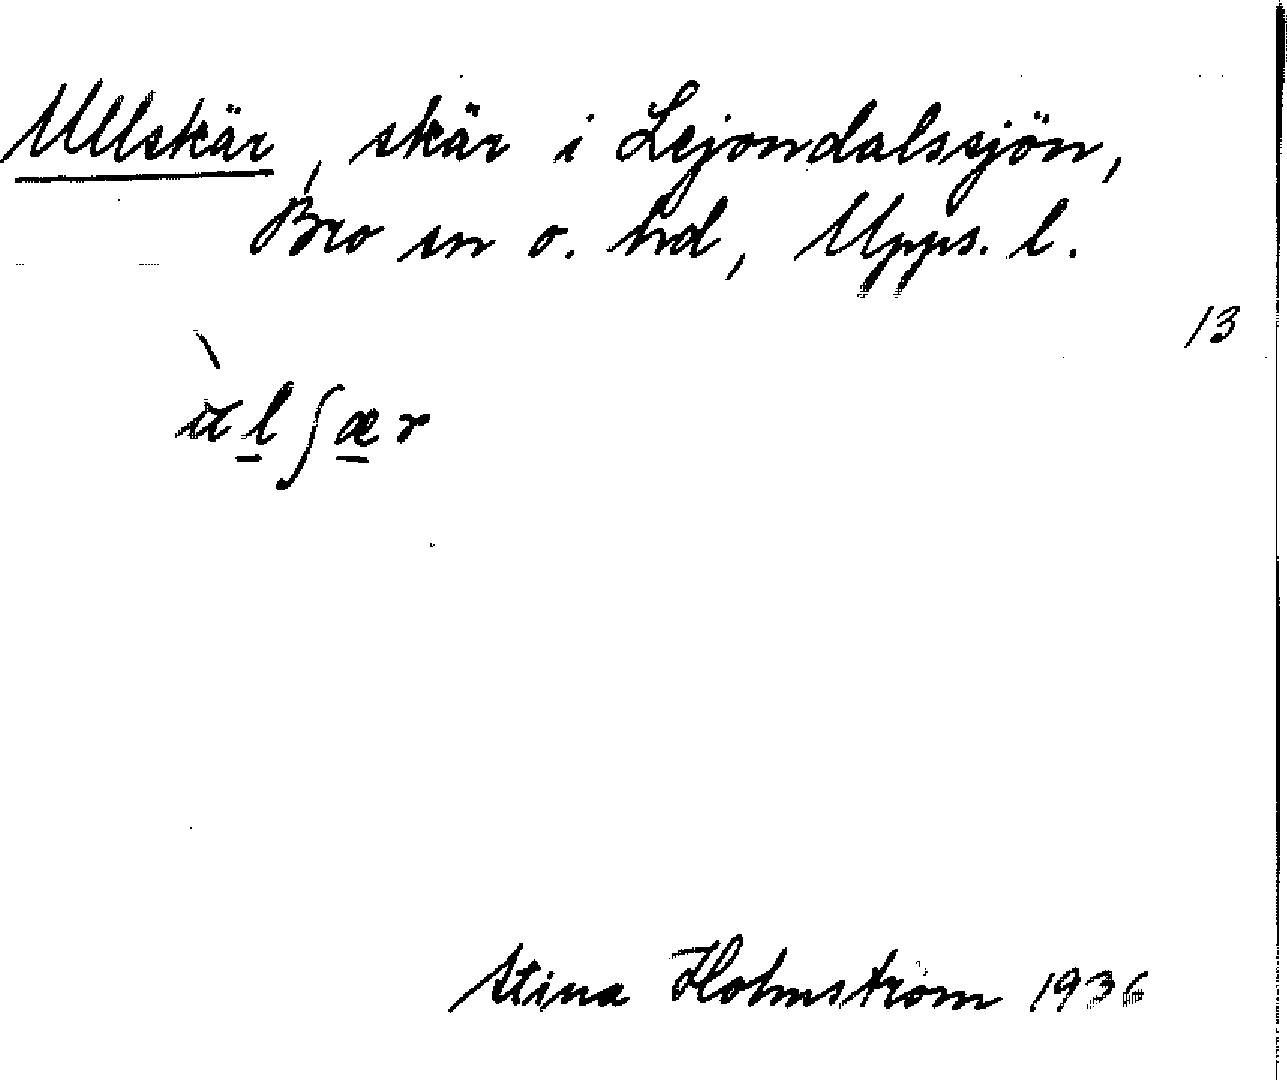 Ullskär, skär i Lejondalssjön,
Bro sn o. hd, Upps. l.
13
Stina Holmström 1936